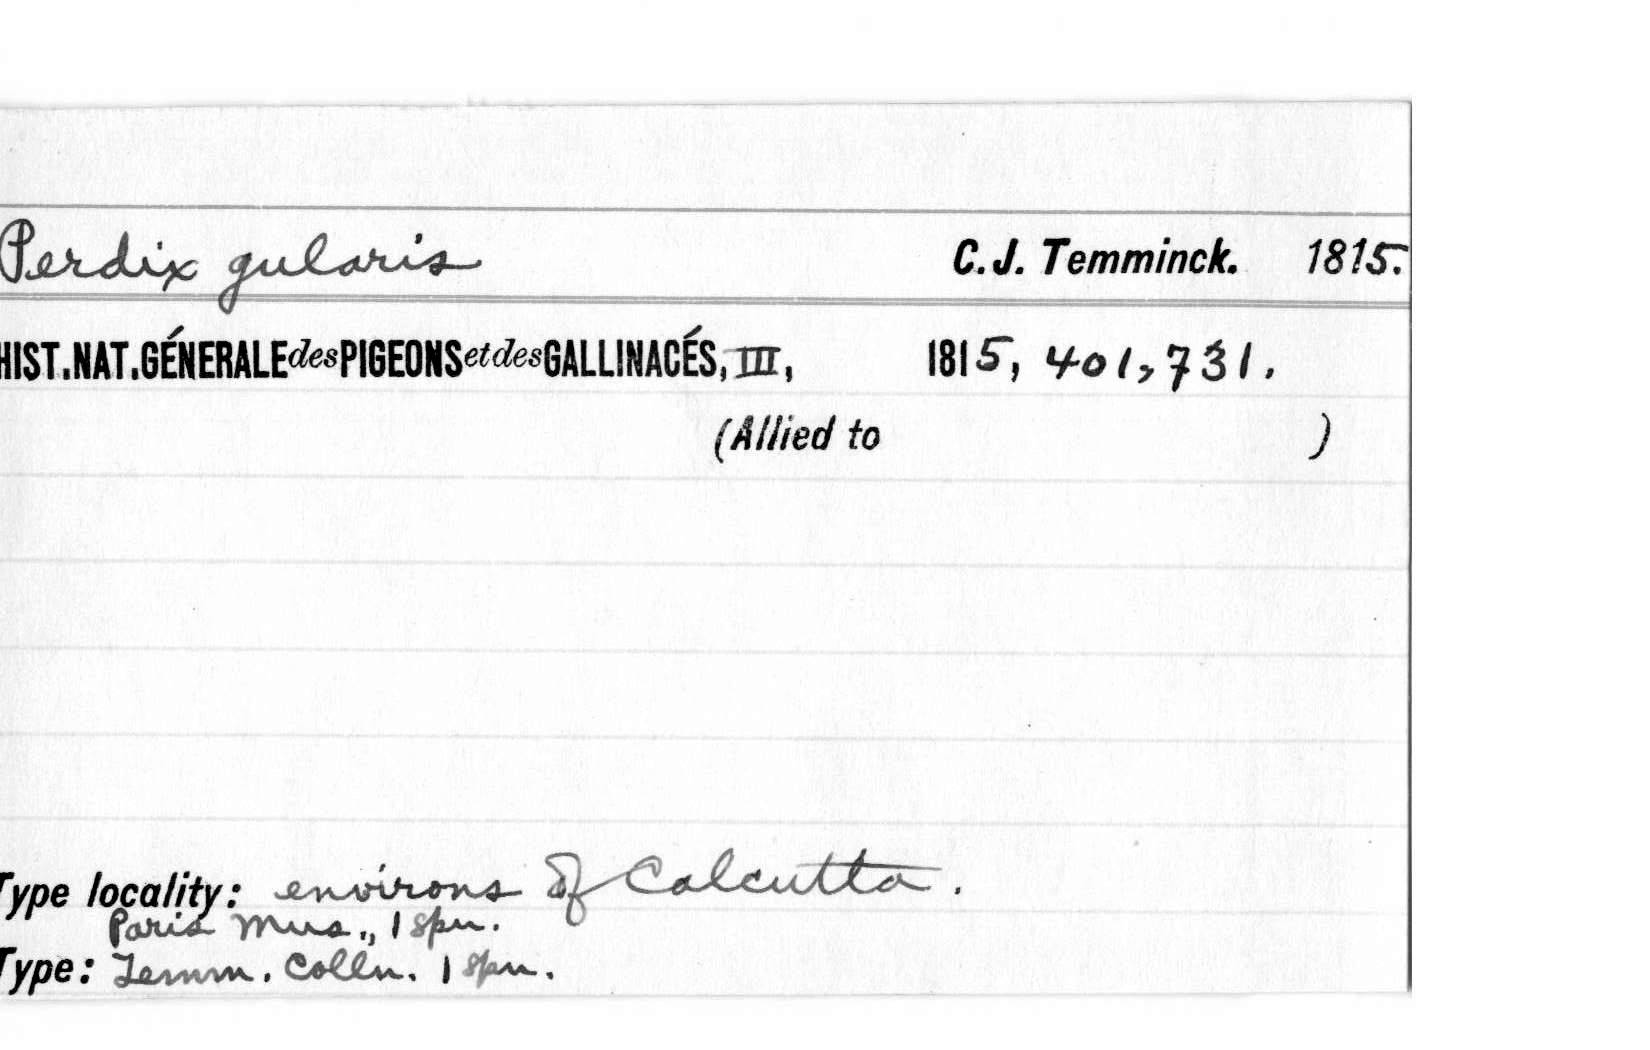 Perdix gularis C.J. Temminck. 1815.
HIST.NAT.GÉNERALE des PIGEONS et des GALLINACÉS, III, 1815, 401, 731.
(Allied to )
Type locality: environs of Calcutta.
Paris Mus., 1 spn.
Type: Temm. Colln. 1 spn.